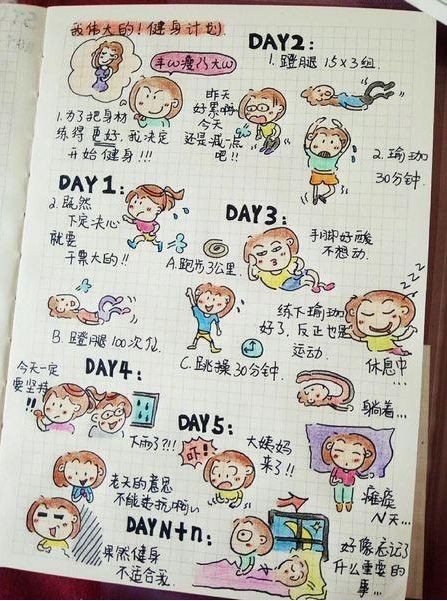 我伟大的！健身计划
半ω瘦79大ω
1.为了把身材
练得更好,我决定
开始健身!!!
DAY1:
2.既然
下定决心
就要
干票大的!!
A.跑步3公里.
B.蹬腿100次/位.
C.跳操30分钟.
DAY2:
昨天
好累啊
今天
还是减一点
吧!!
1.蹬腿 15×3组.
2.瑜珈
30分钟.
DAY3:
手脚好酸
不想动.
练下瑜珈
好了.反正也是
运动.
zzz
休息中...
躺着...
DAY4:
今天一定
要坚持
!!
下雨了?!!
老天的意思
不能违抗啊
果然健身
不适合我.
DAY5:
吓!
大姨妈
来了!!
瘫痪
N天...
DAYN+n:
好像忘记了
什么重要的
事...